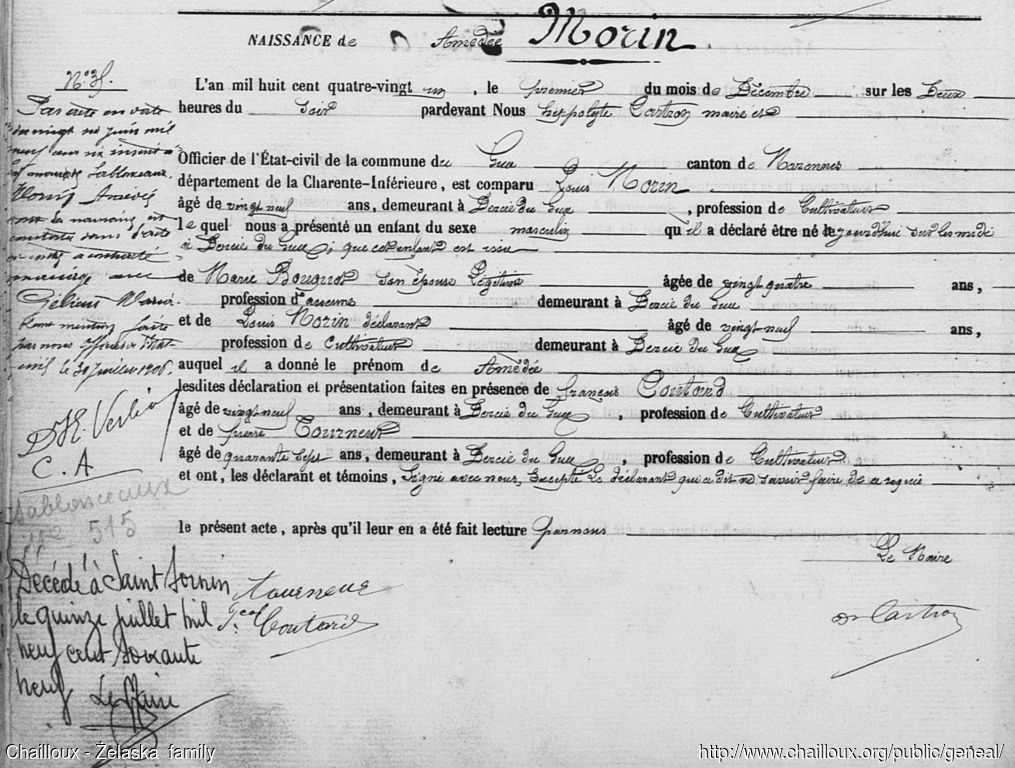 NAISSANCE de Amédée Morin
N° 31
L'an mil huit cent quatre-vingt un, le premier du mois de Décembre sur les Deux
heures du Soir pardevant Nous hippolyte Castron maire et
Officier de l'État-civil de la commune du Gua canton de Marennes
département de la Charente-Inférieure, est comparu Louis Morin
âgé de vingt neuf ans, demeurant à Dercie du Gua, profession de Cultivateur
le quel nous a présenté un enfant du sexe masculin qu'il a déclaré être né le jourd'hui sur les midi
à Dercie du Gua; que cet enfant est issu
de Marie son épouse Légitime âgée de vingt quatre ans,
profession d'aucune demeurant à Dercie du Gua
et de Louis Morin déclarant âgé de vingt neuf ans,
profession de Cultivateur demeurant à Dercie du Gua
auquel il a donné le prénom de Amédée
lesdites déclaration et présentation faites en présence de françois Coutard
âgé de vingt neuf ans, demeurant à Dercie du Gua, profession de Cultivateur
et de pierre Tourneur
âgé de quarante sept ans, demeurant à Dercie du Gua, profession de Cultivateur
et ont, les déclarant et témoins, Signé avec nous, Excepté Le déclarant qui a dit ne savoir faire de ce requis
le présent acte, après qu'il leur en a été fait lecture par nous
Le Maire
Tourneur
Coutard
Dr Castron
Par acte en date
du vingt juin mil
neuf cent six inscrit
Sablonceaux
Morin Amédée
dont la naissance est
constatée
a contracté
mariage avec
Marie
mention faite
par nous officier de l'état
civil le 30 juillet 1906.
C. A
Sablonceaux
515
Décédé à Saint Sornin
le quinze juillet mil
neuf cent soixante
neuf Le Maire
Chailloux - Żelaska family
http://www.chailloux.org/public/geneal/